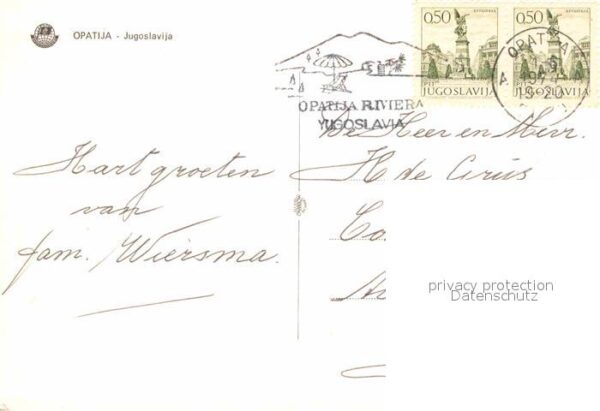 OPATIJA - Jugoslavija
0,50 KRUŠEVAC
JUGOSLAVIJA
0,50 KRUŠEVAC
JUGOSLAVIJA
OPATIJA
OPATIJA RIVIERA
YUGOSLAVIA
De Heer en Mevr.
H de
Co
Hart groeten
van
fam. Wiersma.
privacy protection
Datenschutz